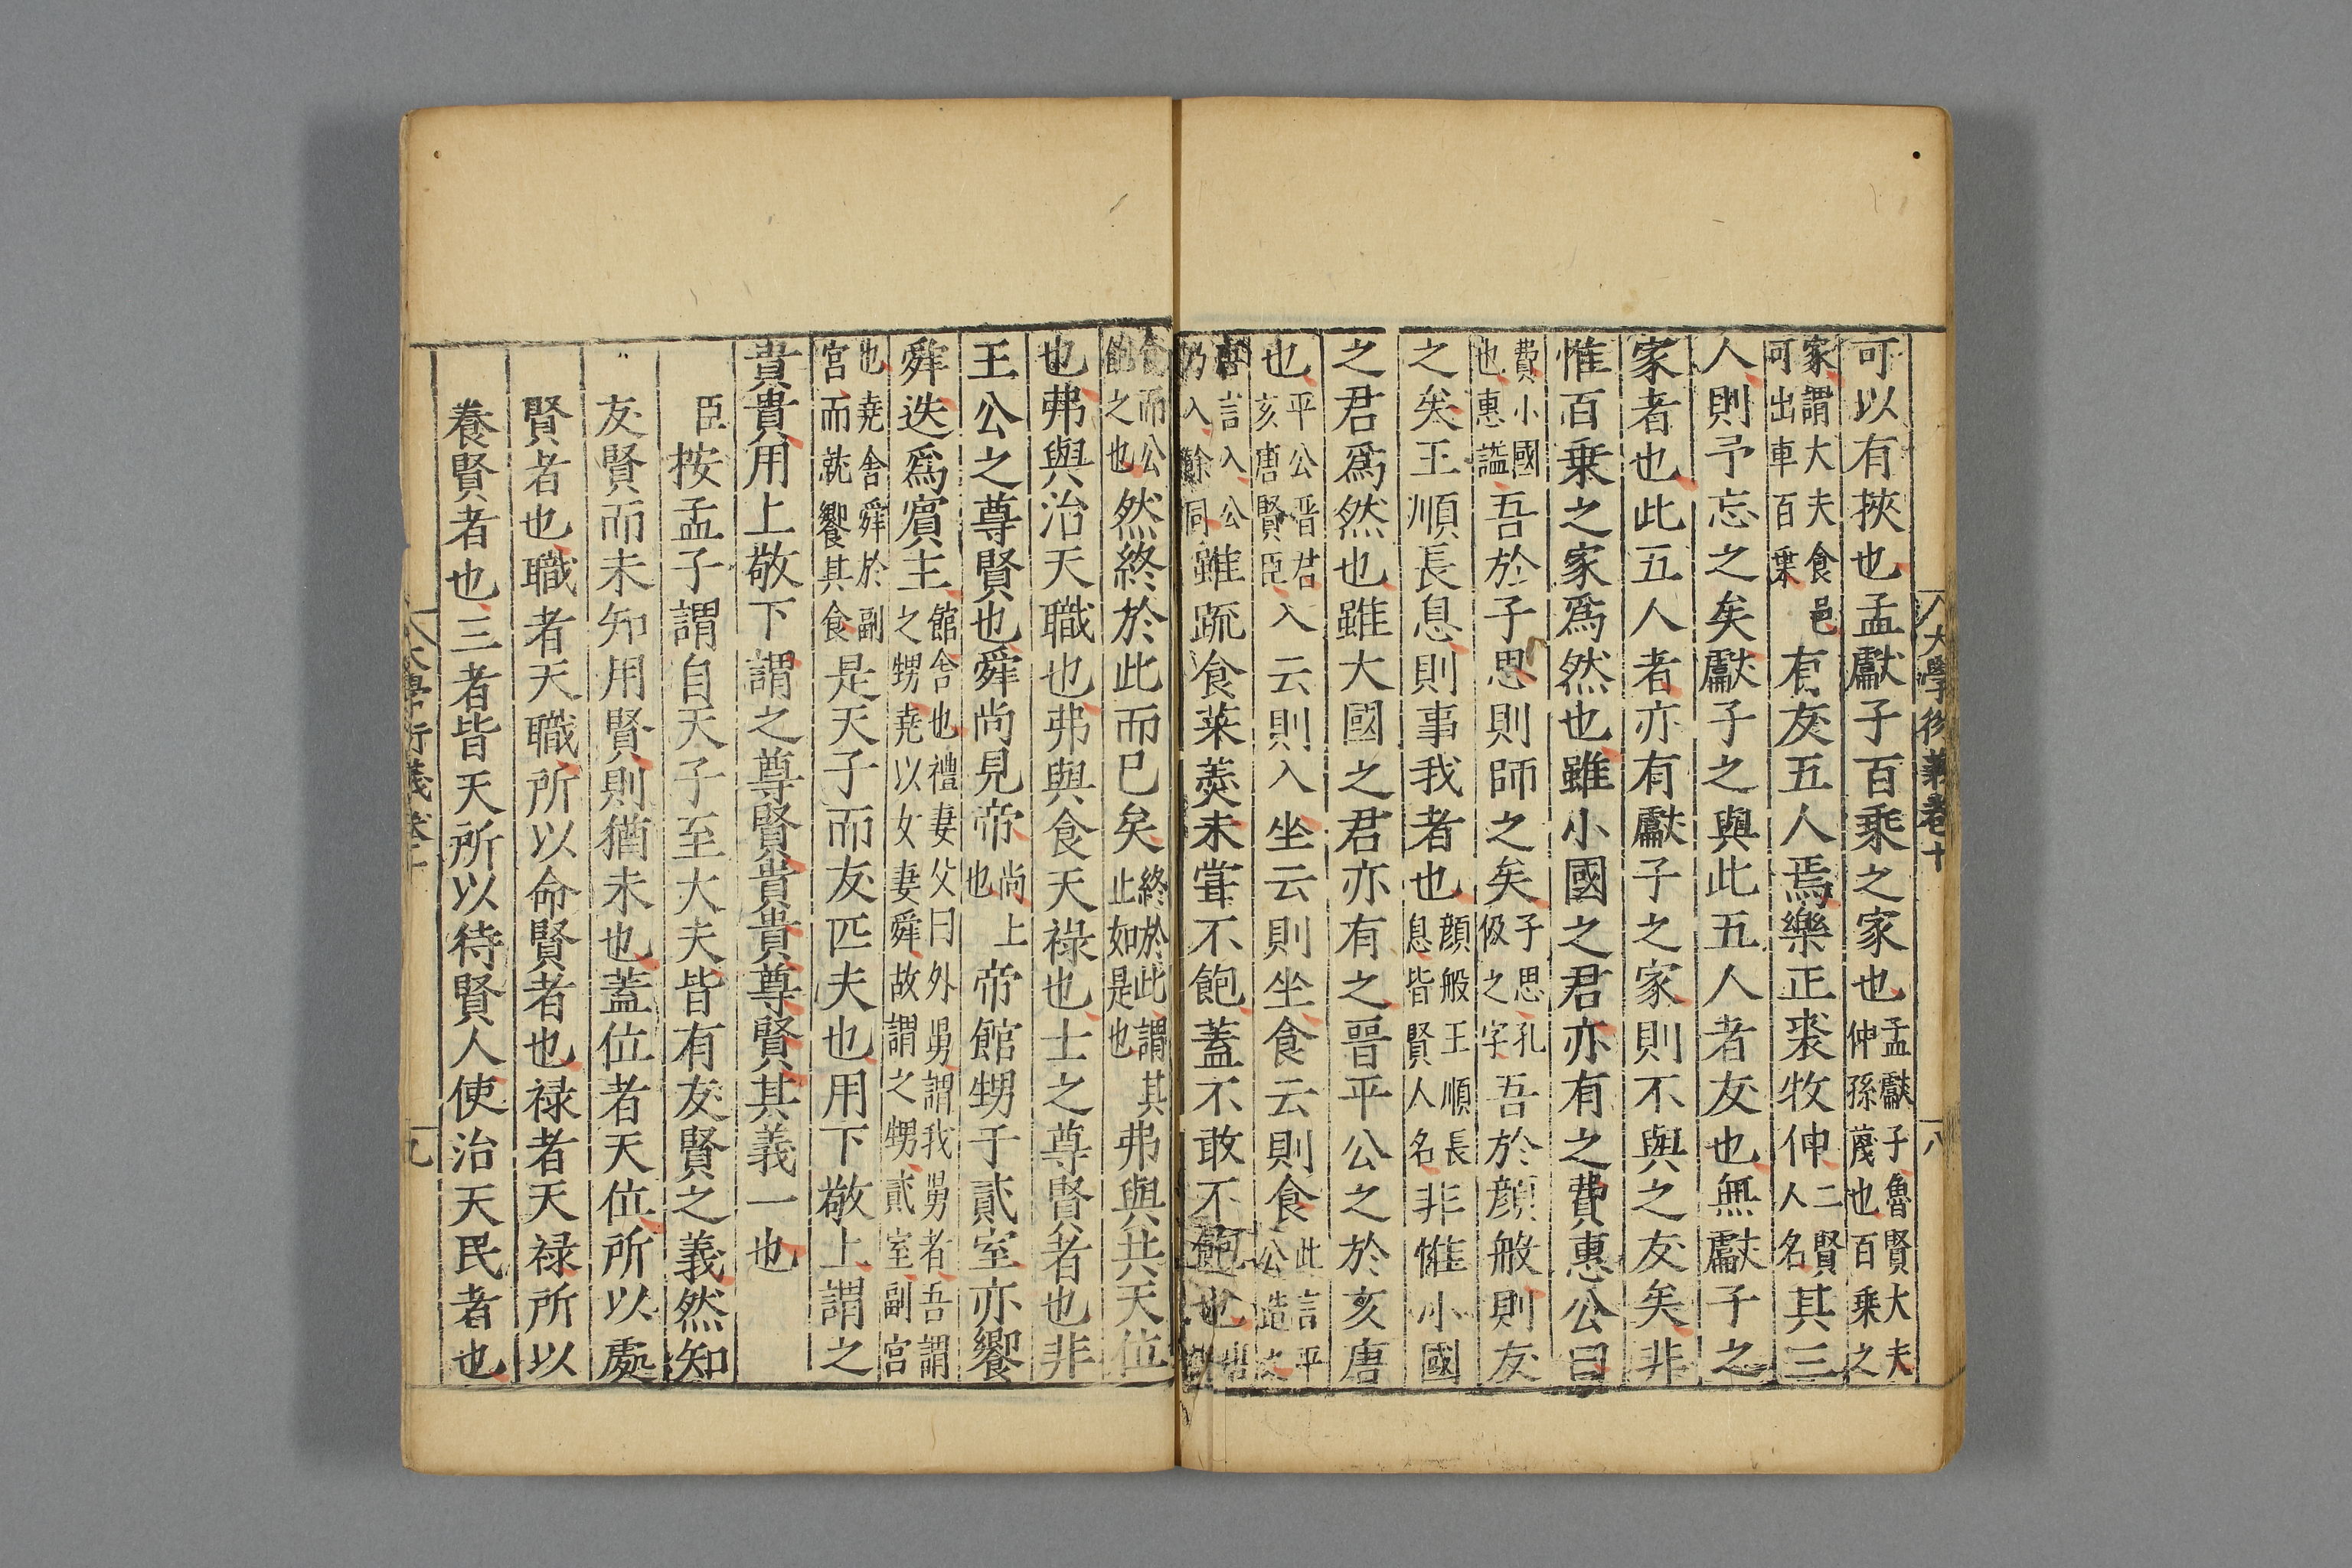 大學衍義卷十 八
可以有挾也孟獻子百乘之家也孟獻子魯賢大夫仲孫蔑也百乘之
家謂大夫食邑可出車百乗有友五人焉樂正裘牧仲二賢人名其三
人則予忘之矣獻子之與此五人者友也無獻子之
家者也此五人者亦有獻子之家則不與之友矣非
惟百乗之家爲然也雖小國之君亦有之費惠公曰
費小國也惠謚吾於子思則師之矣子思孔伋之字吾於顔般則友
之矣王順長息則事我者也顔般王順長息皆賢人名非惟小國
之君爲然也雖大國之君亦有之晉平公之於亥唐
也平公晋君亥唐賢臣入云則入坐云則坐食云則食此言平公造之
唐言入公乃入餘同雖疏食菜羮未甞不飽蓋不敢不飽也
食而公飽之也然終於此而已矣終於此謂其止如是也弗與共天位
也弗與治天職也弗與食天禄也士之尊賢者也非
王公之尊賢也舜尚見帝尚上也帝館甥于貳室亦饗
舜迭爲賔主館舍也禮妻父曰外舅謂我舅者吾謂之甥堯以女妻舜故謂之甥貳室副宮
也堯舍舜於副宮而就饗其食是天子而友匹夫也用下敬上謂之
貴貴用上敬下謂之尊賢貴貴尊賢其義一也
臣按孟子謂自天子至大夫皆有友賢之義然知
友賢而未知用賢則猶未也蓋位者天位所以處
賢者也職者天職所以命賢者也禄者天禄所以
養賢者也三者皆天所以待賢人使治天民者也
大學衍義卷十 九